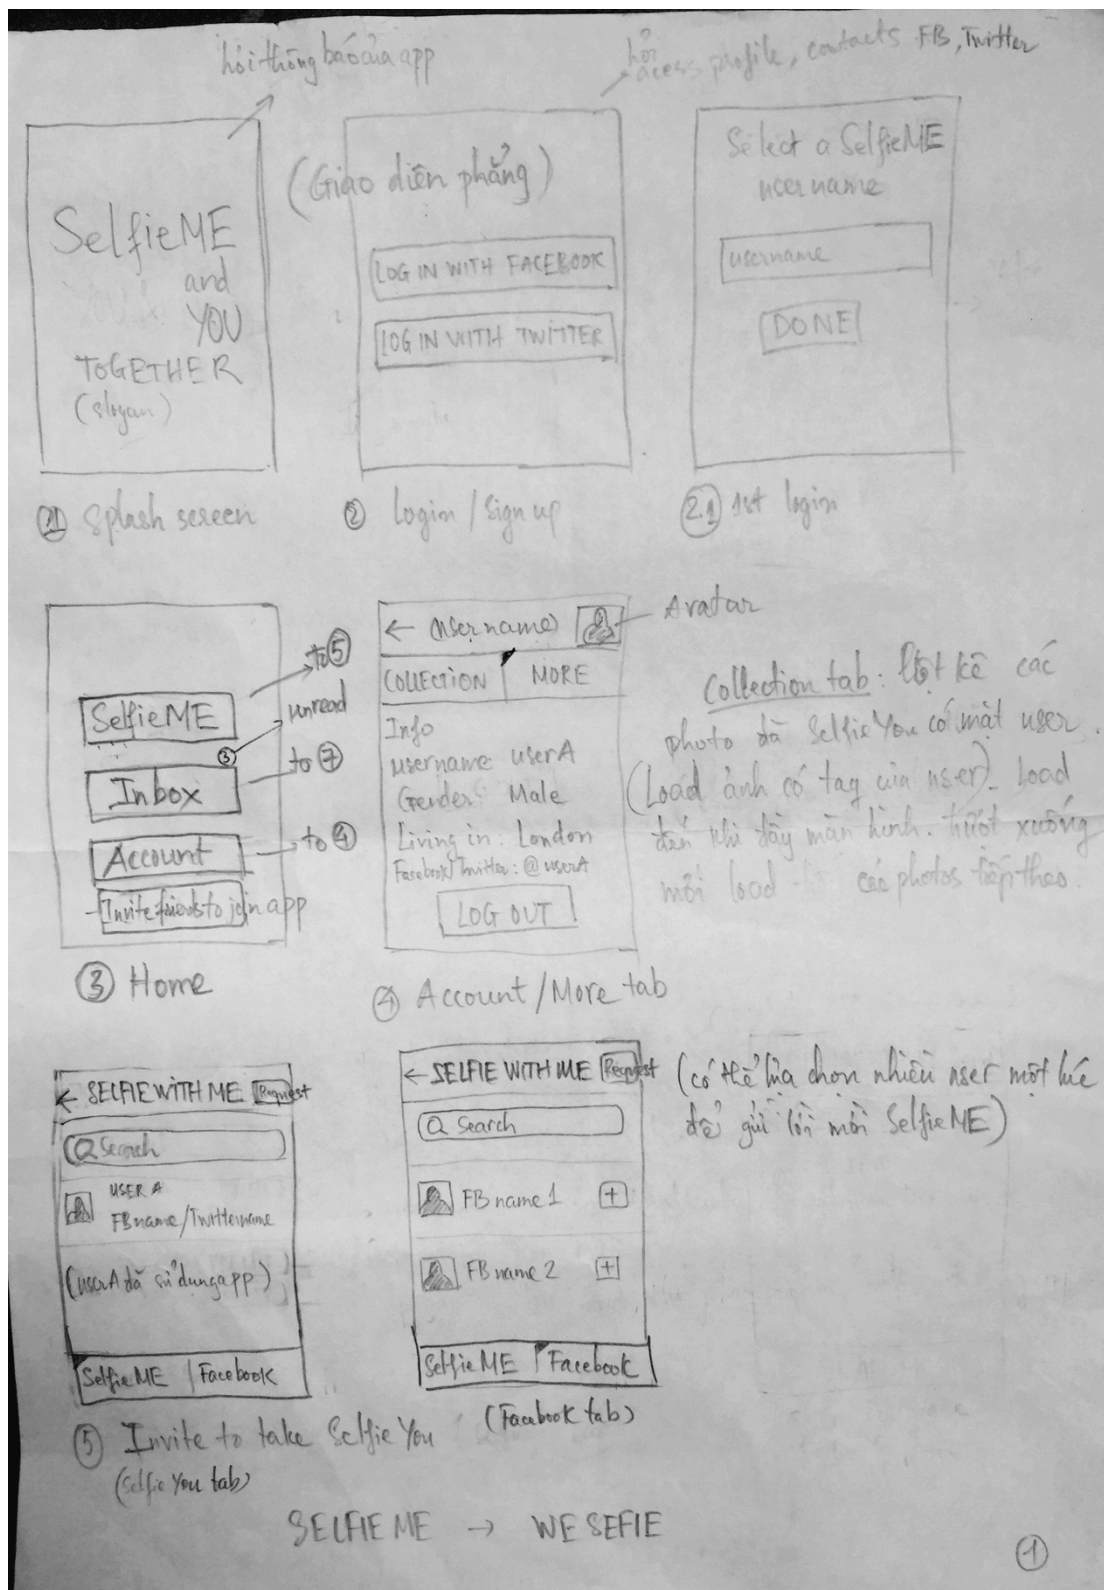 hỏi thông báo của app
hỏi
access profile, contacts FB, Twitter
(Giao diện phẳng)
SelfieME
and
YOU
TOGETHER
(slogan)
LOG IN WITH FACEBOOK
LOG IN WITH TWITTER
Select a SelfieME
username
username
DONE
① Splash screen
② Login / Sign up
2.1 1st login
SelfieME
to ⑤
unread
③
Inbox
to ⑦
Account
to ④
Invite friends to join app
③ Home
← (username)
Avatar
COLLECTION
MORE
Info
username: userA
Gender: Male
Living in: London
Facebook/Twitter: @userA
LOG OUT
④ Account/More tab
Collection tab: liệt kê các
photo đã SelfieYou có mặt user.
(Load ảnh có tag của user). Load
đến khi đầy màn hình. trượt xuống
mới load các photos tiếp theo.
← SELFIE WITH ME Request
Search
USER A
FB name/Twittername
(userA đã sử dụng app)
SelfieME | Facebook
⑤ Invite to take Selfie You
(Selfie You tab)
← SELFIE WITH ME Request
Search
FB name 1 +
FB name 2 +
SelfieME Facebook
(Facebook tab)
(có thể lựa chọn nhiều user một lúc
để gửi lời mời SelfieME)
SELFIE ME → WE SEFIE
①